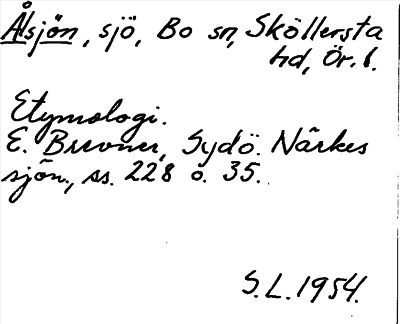 Ålsjön, sjö, Bo sn, Sköllersta
hd, Ör. l.
Etymologi.
E. Brevner, Sydö. Närkes
sjön., ss. 228 o. 35.
S.L. 1954.